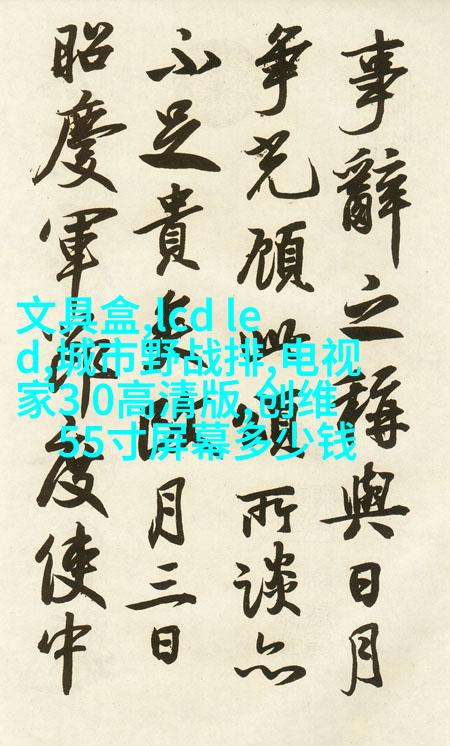 事辭之稱與日月
爭光顧此頌所談亦
不足貴月三日
昭慶軍節度使中
文具盒,lcd le
d,城市野战排,电视
家3.0高清版,创维
55寸屏幕多少钱